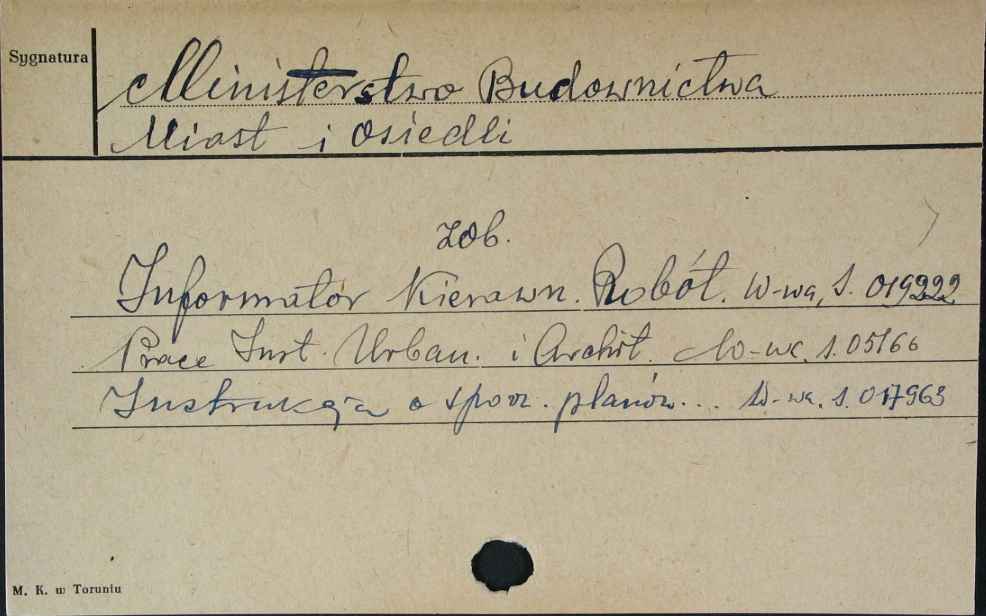 Sygnatura
Ministerstwo Budownictwa
Miast i Osiedli
zob.
Informator Kierown. Robót. W-wa, S. 019222
Prace Inst. Urban. i Archit. W-wa, S. 05166
Instrukcja o sporz. planów... W-wa. S. 017963
M. K. w Toruniu